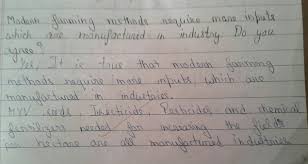 Modern farming methods require more inputs
which are manufactured in industry. Do you
agree?
Yes, It is true that modern farming
methods require more inputs which are
manufactured in industries.
HYV seeds, Insecticides, Pesticides and chemical
fertilizers needed for increasing the field
per hectare are all manufactured Industries